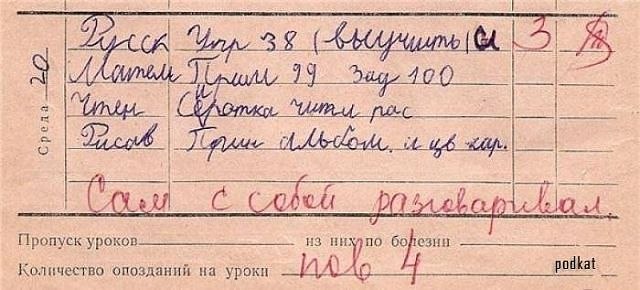 Среда 20
Русск Упр 38 (выучить) и 3
Матем Прим 99 Зад 100
Чтен Сиротка читл рас
Рисов Прин альбом. и цв кар.
Сам с собой разговаривал
Пропуск уроков из них по болезни
Количество опозданий на уроки пов 4
podkat